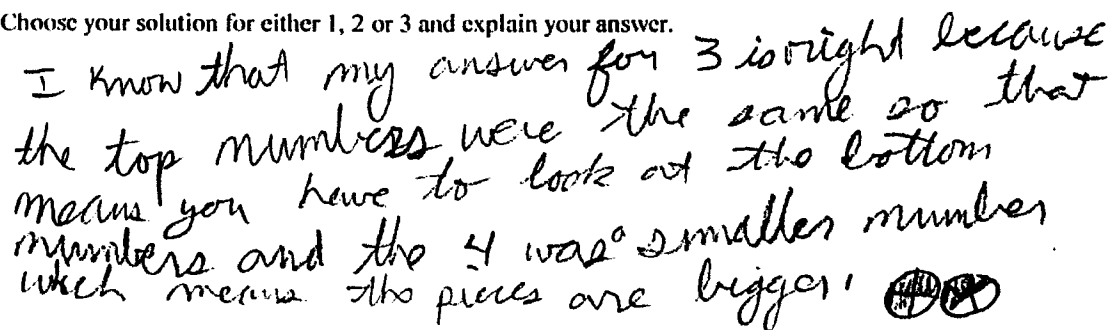 Choose your solution for either 1, 2 or 3 and explain your answer.
I know that my answer for 3 is right because
the top numbers were the same so that
means you have to look at the bottom
numbers and the 4 was a smaller number
which means the pieces are bigger.